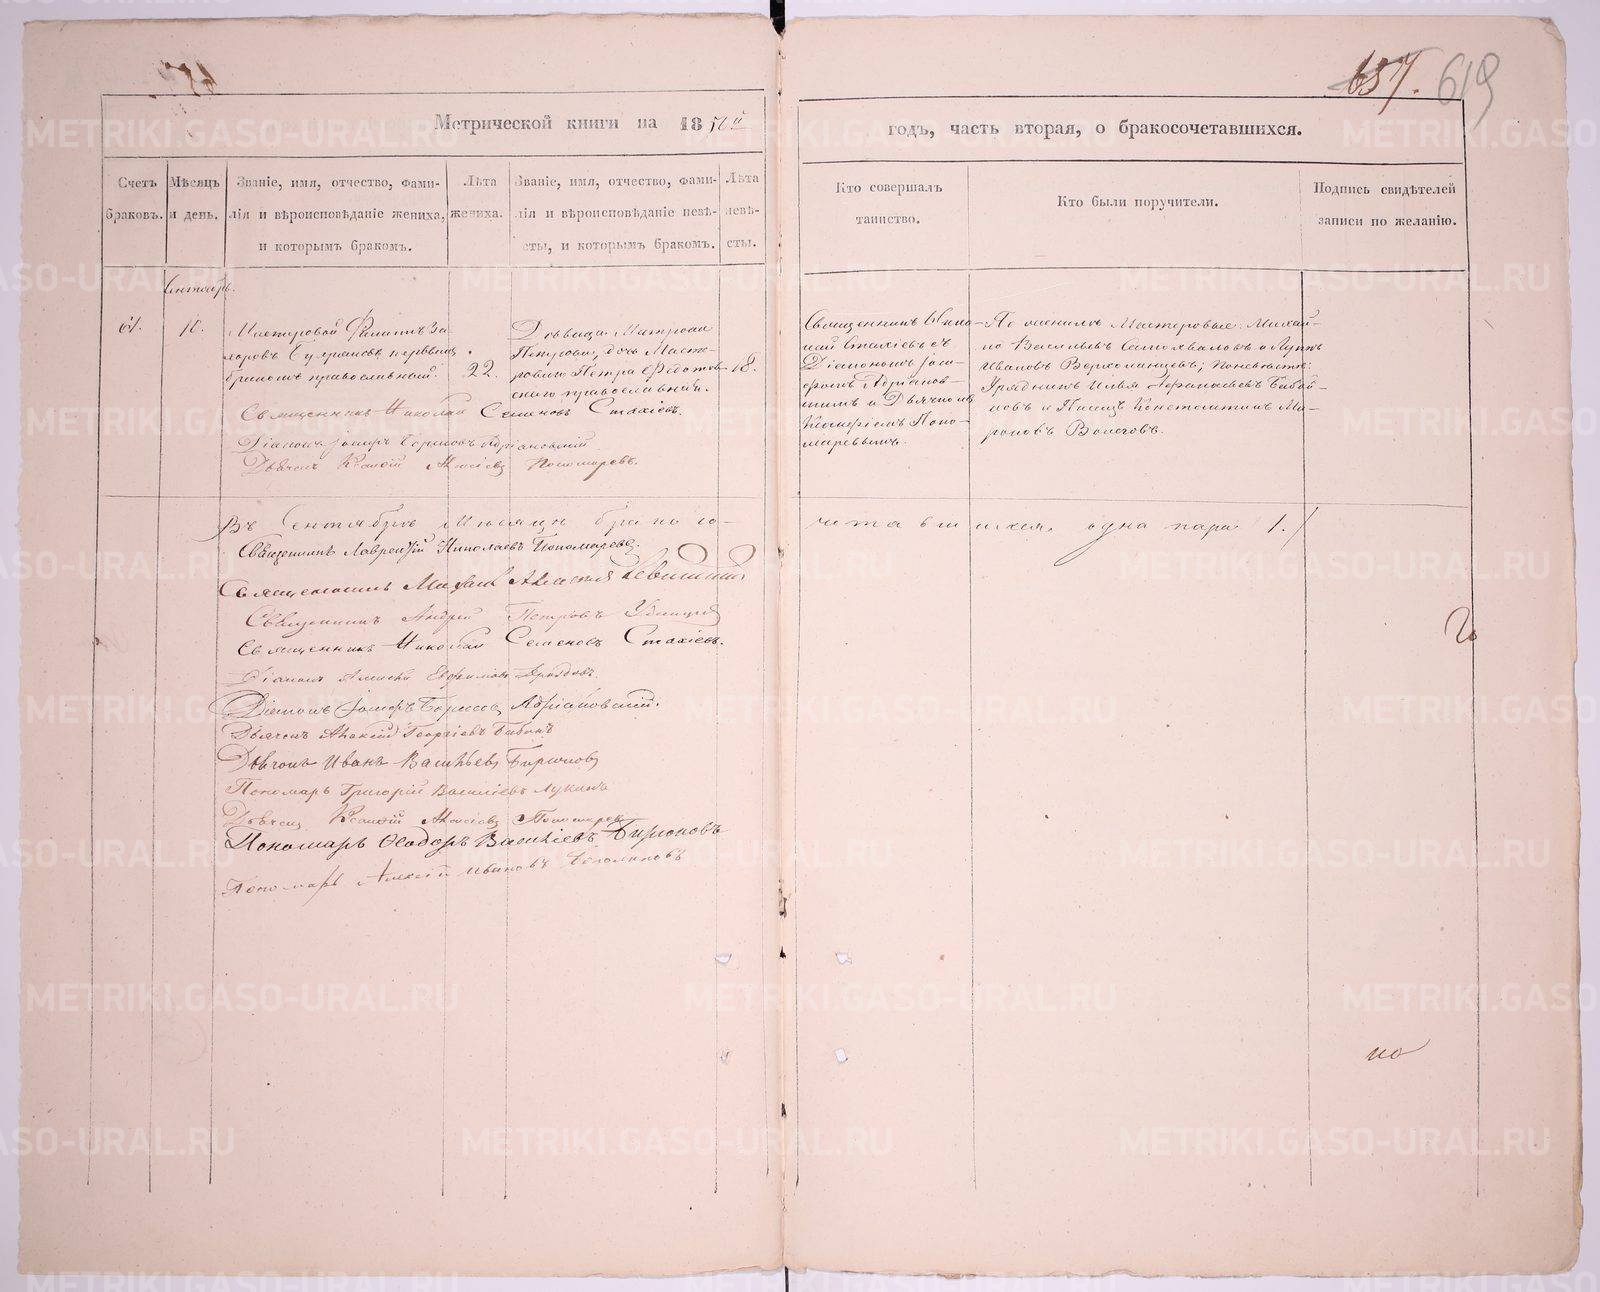 657. 619
Метрической книги на 1856й
годъ, часть вторая, о бракосочетавшихся.
Счетъ браковъ.
Мѣсяцъ и день.
Званіе, имя, отчество, фами-
лія и вѣроисповѣданіе жениха,
и которымъ бракомъ.
Лѣта
жениха.
Званіе, имя, отчество, фами-
лія и вѣроисповѣданіе невѣ-
сты, и которымъ бракомъ.
Лѣта
невѣ-
сты.
Кто совершалъ
таинство.
Кто были поручители.
Подпись свидѣтелей
записи по желанію.
Сентябрь.
61.
10.
Мастеровой Филиппъ За-
харовъ первымъ
бракомъ православный.
22.
Дѣвица Матрона
Петрова, дочь Масте-
роваго Петра Федотов-
скаго православная.
18.
Священникъ Нико-
лай Стахіевъ съ
Діакономъ Іоси-
фомъ Адріанов-
скимъ и Дьячкомъ
Поно-
маревымъ.
По женихѣ Мастеровые: Михай-
ло Васильевъ Самохваловъ и Лупъ
Ивановъ по невѣстѣ:
Урядникъ Илья Афанасьевъ Бабай-
ловъ и Писецъ Константинъ Ма-
роновъ
Священникъ Николай Семеновъ Стахіевъ.
Діаконъ Іосифъ Борисовъ Адріановскій
Дьячекъ Алексіевъ Пономаревъ.
Въ Сентябрѣ Мѣсяцѣ бракосо-
читавшихся одна пара 1./
Священникъ Лаврентій Николаевъ Пономаревъ
Священникъ Михаилъ Алексіевъ Левитскій
Священникъ Андрей Петровъ Удинцевъ
Священникъ Николай Семеновъ Стахіевъ.
Діаконъ Алексѣй Ефимовъ Дроздовъ.
Діаконъ Іосифъ Борисовъ Адріановскій.
Дьячекъ Георгіевъ Бабинъ
Дьячекъ Иванъ Васильевъ Бирюковъ
Пономарь Григорій Василіевъ Лукинъ
Дьячекъ Алексіевъ Пономаревъ
Пономарь Ѳеодоръ Васильевъ Бирюковъ
Пономарь Алексѣй Ивановъ
по
METRIKI.GASO-URAL.RU